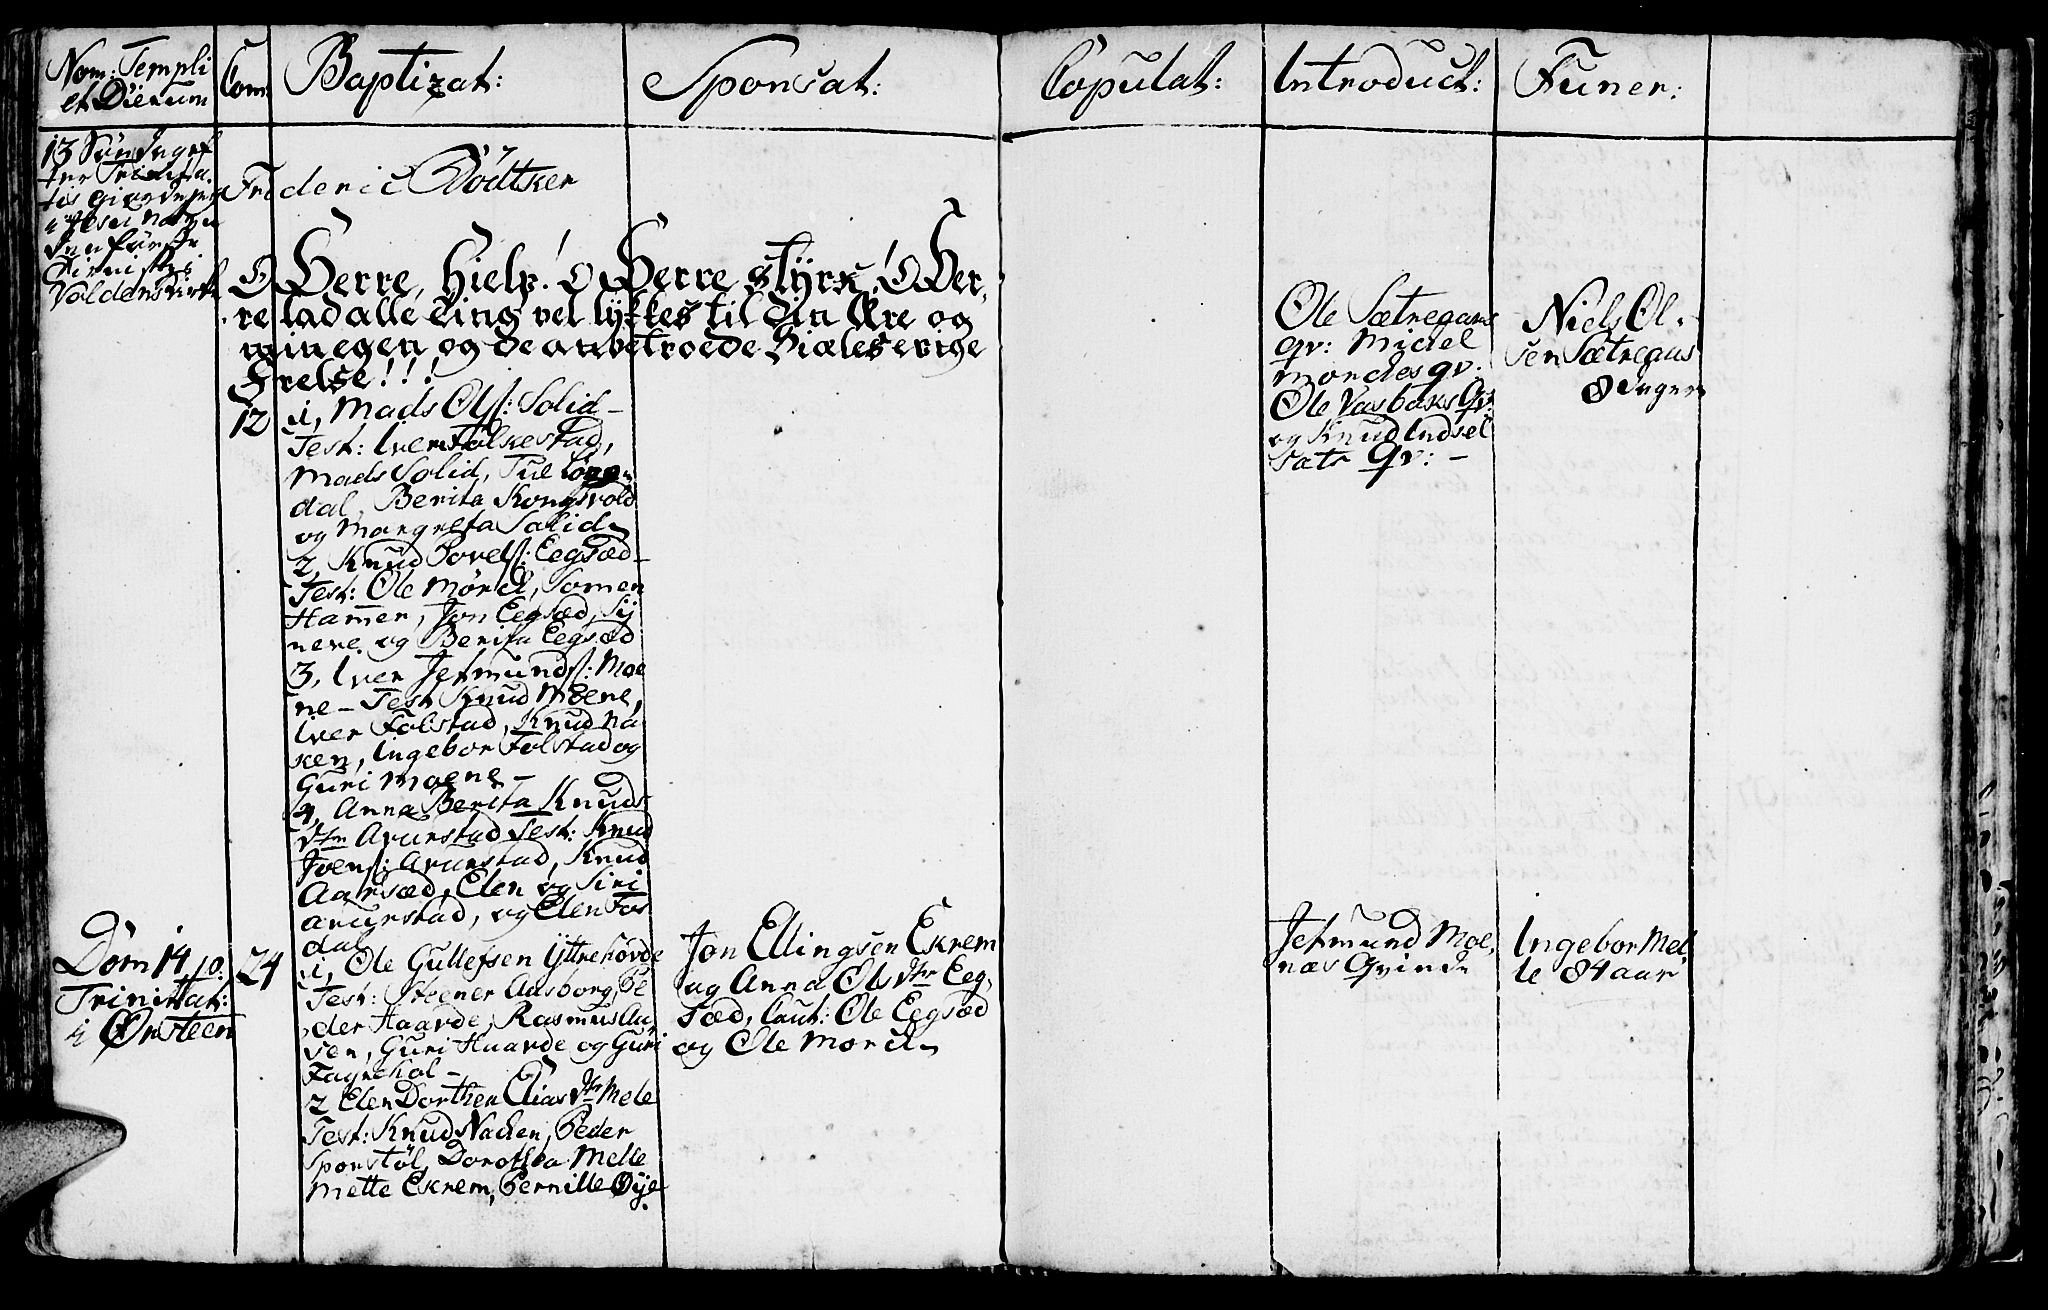 Nom: Templi
et Dierum
Com:
Baptizat:
Sponsat:
Copulat:
Introduct:
Funer:
13 Sønd
tis giorde jeg
i Jesu nafn
Voldens kirke
Frideric Bødtker
O Herre, Hielp! O Herre styrk! O Her,
re lad alle ting vel lykkes til din Ære og
min egen og de anbetroede Siæles evige
Frelse!!!
12
1, Mads Ols: Solid -
Test: Iver Folkestad,
Mads Solid, Tue
dal, Berita Kongsvold
og Margreta Solid
2, Knud Povels: Eegsæd -
Test: Ole Mørch,
Hamer, Jon Eegsæd, Sy
nere og Berita Eegsæd
3, Iver Jetmunds: Moe
ne - Test Knud Moene,
Iver Folstad, Knud Na
ken, Ingebor Folstad og
Guri Moene -
4, Anna Berita Knuds
dtr Aurstad Test: Knud
Joens: Aurstad, Knud
Aarsæd, Elen og Siri
Aurstad, og Elen Fos
dal
Ole Sætregars
qv: Michel
Morches qv:
Ole Vasbaks Qv:
og Knud Indsel
sæts Qv: -
Niels Ol,
sen Sætregars
8 Dager
Dom 14 p:
Trinitat:
i Ørsteen
24
1, Ole Gullefsen Yttrehovde
Test: Steener Aasborg, Pe
der Haarde, Rasmus Au,
ren, Guri Haarde og Guri
Fagrehol -
2 Elen Dorthen Elias dtr Mele
Test: Knud Nacken, Peder
Sporstøl, Dorothea Melle
Mette Ekrem, Pernille Øye
Jon Ellingsen Ekrem
og Anna Ols dtr Eeg,
sæd, Caut: Ole Eegsæd
og Ole Morch
Jetmund Moe,
næs Qvinde
Ingebor Mel,
le 84 aar